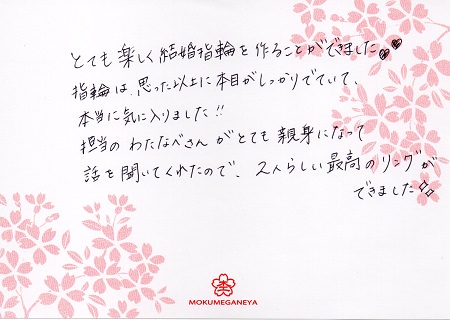 とても楽しく結婚指輪を作ることができました♥♥
指輪は、思った以上に木目がしっかりでていて、
本当に気に入りました!!
担当のわたなべさんがとても親身になって
話を聞いてくれたので、2人らしい最高のリングが
できました
MOKUMEGANEYA